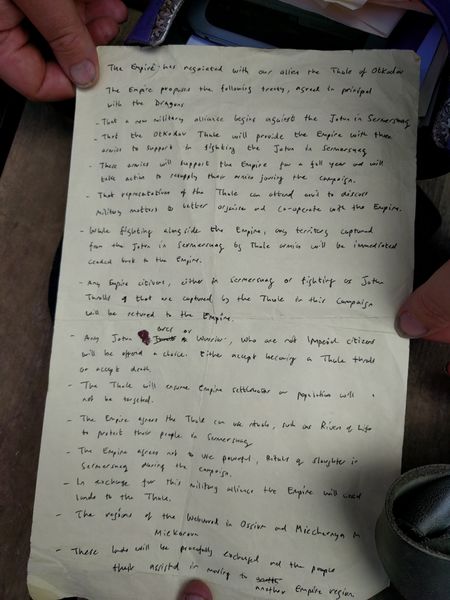 The Empire has negoiated with our allies the Thule of Otkodov
The Empire proposes the following treaty, agreed in principal
with the Dragons
- That a new military alliance begins against the Jotun in Sermersuaq
- That the Otkodov Thule will provide the Empire with three
armies to support in fighting the Jotun in Sermersuaq
- These armies will support the Empire for a full year and will
take action to resupply their armies joining the campaign.
- That representatives of the Thule can attend anvil to discuss
military matters to better organise and co-operate with the Empire.
- While fighting alongside the Empire, any territory captured
from the Jotun in Sermersuaq by Thule armies will be immediated
ceaded back to the Empire.
- Any Empire citizens, either in Sermersuaq or fighting as Jotun
Thralls if that are captured by the Thule in this Campaign
will be retured to the Empire.
- Any Jotun orcs or Warriors, who are not Imperial citizens
will be offered a choice. Either accept becoming a Thule thrall
or accept death.
- The Thule will ensure Empire settlements or population will
not be targeted.
- The Empire agrees the Thule can use rituals, such as Rivers of Life
to protect their people in Sermersuaq
- The Empire agrees not to use powerful, Rituals of slaughter in
Sermersuaq during the Campaign.
- In exchange for this military alliance the Empire will cead
lands to the Thule.
- The regions of the in Ossium and in
- These lands will be peacefully exchanged and the people
assisted in moving to
another Empire region.